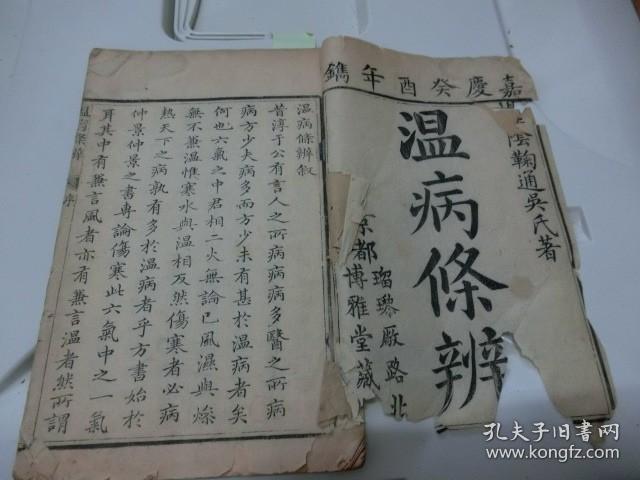 嘉慶癸酉年鐫
陰鞠通吳氏著
温病條辨
京都瑠璃厰路北
博雅堂藏
温病條辨叙
昔淳于公有言人之所病病病多醫之所病
病方少夫病多而方少未有甚於温病者矣
何也六氣之中君相二火無論已風濕與燥
無不兼温惟寒水與温相反然傷寒者必病
熱天下之病孰有多於温病者乎方書始於
仲景仲景之書專論傷寒此六氣中之一氣
耳其中有兼言風者亦有兼言温者然所謂
孔夫子旧书网
www.kongfz.com